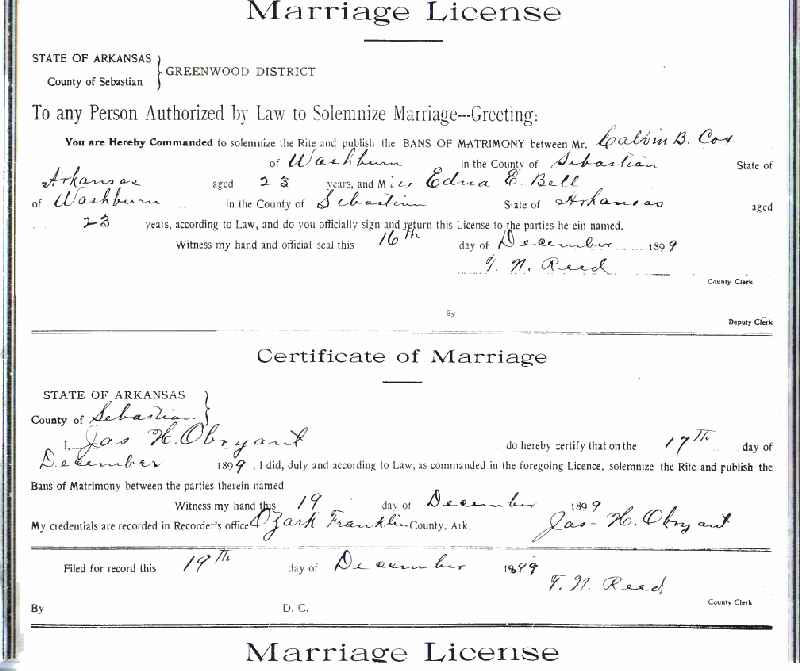 Marriage License
STATE OF ARKANSAS
County of Sebastian
GREENWOOD DISTRICT
To any Person Authorized by Law to Solemnize Marriage---Greeting:
You are Hereby Commanded to solemnize the Rite and publish the BANS OF MATRIMONY between Mr. Calvin B. Cox
of Washburn in the County of Sebastian State of
Arkansas aged 23 years, and Miss Edna E. Bell
of Washburn in the County of Sebastian State of Arkansas aged
23 years, according to Law, and do you officially sign and return this License to the parties herein named.
Witness my hand and official seal this 16th day of December 1899
T. N. Reed
County Clerk
By
Deputy Clerk
Certificate of Marriage
STATE OF ARKANSAS
County of Sebastian
I, Jas H. Obryant do hereby certify that on the 17th day of
December 1899, I did, duly and according to Law, as commanded in the foregoing Licence, solemnize the Rite and publish the
Bans of Matrimony between the parties therein named
Witness my hand this 19 day of December 1899
My credentials are recorded in Recorder's office Ozark Franklin County, Ark. Jas. H. Obryant
Filed for record this 19th day of December 1899
T. N. Reed
County Clerk
By D. C.
Marriage License